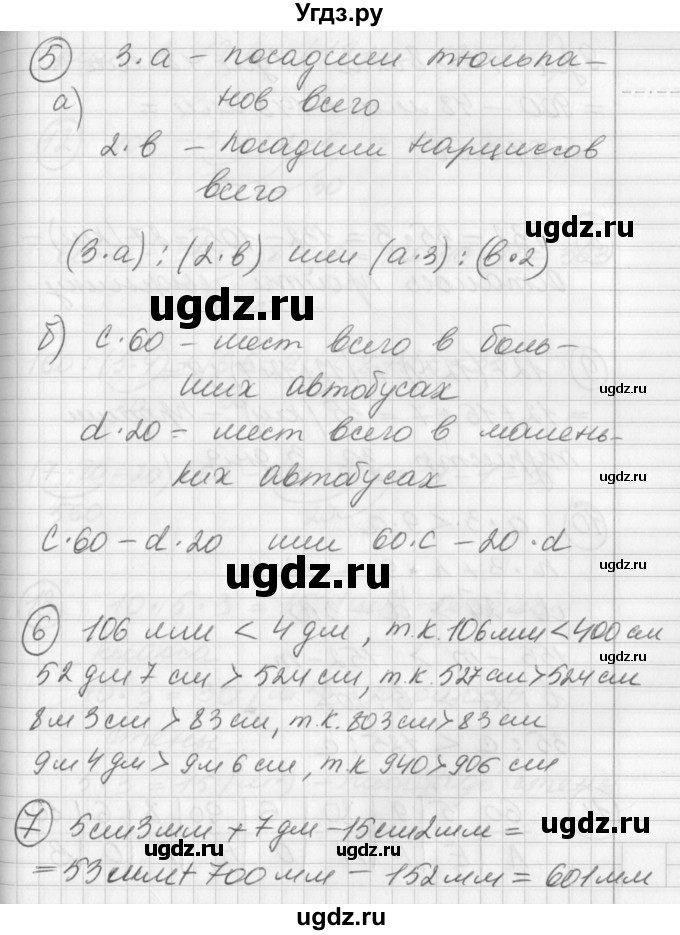 Угдз.ру
5 3·а – посадили тюльпа–
а) нов всего
2·в – посадили нарциссов
всего
ugdz.ru
(3·а) : (2·в) или (а·3) : (в·2)
ugdz.ru
б) с·60 – мест всего в боль–
ших автобусах
ugdz.ru
d·20 – мест всего в малень–
ких автобусах
ugdz.ru
с·60 – d·20 или 60·с – 20·d
ugdz.ru
ugdz.ru
6 106 мм < 4 дм, т.к. 106 мм < 400 см
52 дм 7 см > 524 см, т.к. 527 см > 524 см
8 м 3 см > 83 см, т.к. 803 см > 83 см
9 м 4 дм > 9 м 6 см, т.к 940 > 906 см
7 5 см 3 мм + 7 дм – 15 см 2 мм =
ugdz.ru
ugdz.ru
= 53 мм + 700 мм – 152 мм = 601 мм
ugdz.ru